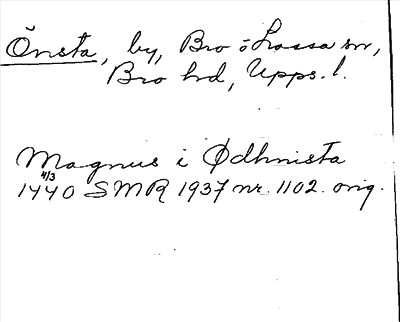 Önsta, by, Bro o Lossa sn,
Bro hd, Upps. l.
Magnus i Ødhnista
1440 4/3 SMR 1937 nr. 1102. orig.